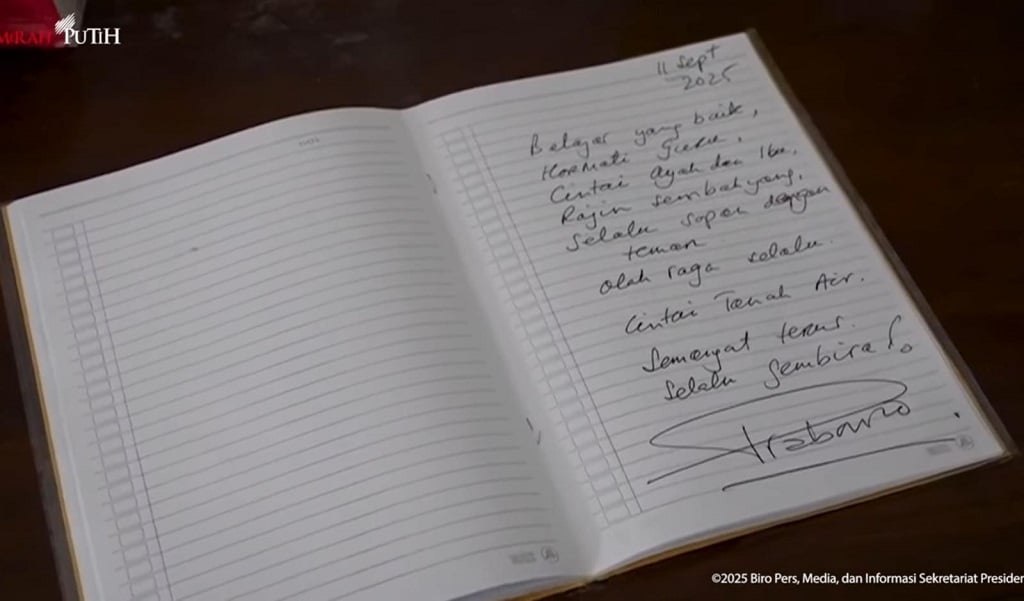 MERAH PUTIH
11 Sept
2025
Belajar yang baik,
Hormati Guru,
Cintai Ayah dan Ibu,
Rajin sembahyang,
selalu sopan dengan
teman
olah raga selalu.
Cintai Tanah Air.
Semangat terus.
Selalu Gembira!
Prabowo
©2025 Biro Pers, Media, dan Informasi Sekretariat Presiden